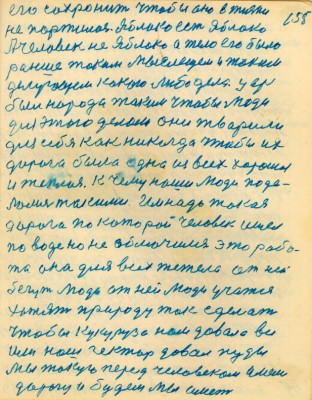 его сохронит чтобы оно в тепли 158
не портилос. Яблоко ест Яблоко
А человек не Яблоко а тело его было
ранше таким мыслящем и таким
делающем какого либо дела. у ер
был народа таким чтобы люди
для этого делали они тварили
для себя как никогда чтобы их
дорога была одна из всех хорошея
и теплия. К чему наши люди попа-
лися такими. Им надо такая
дорога по которой человек шел
по воде но не обмочился это рабо-
та она для всех тежела от неё
бегут люди от ней люди учатся
хотят природу так сделат
чтобы кукуруза нам довала ве
ли наш гектар довал пуды
мы такую перед человеком имеем
дорогу и будем мы имет